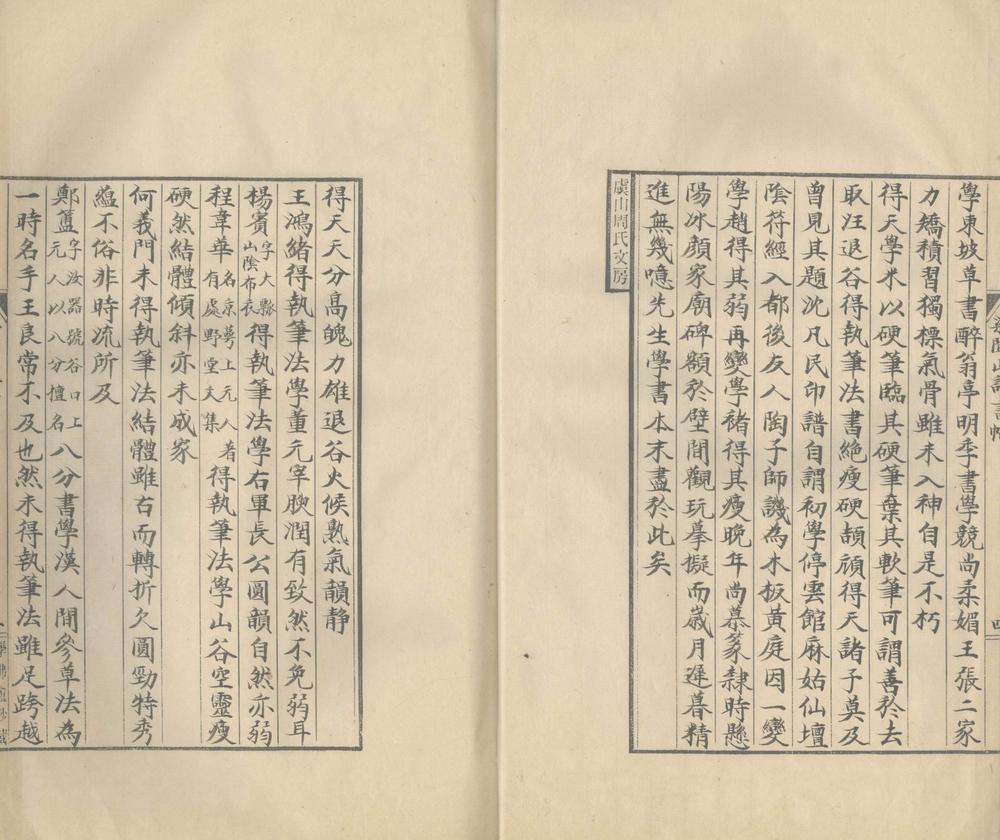 學東坡草書醉翁亭明季書學競尚柔媚王張二家
力矯積習獨標氣骨雖未入神自是不朽
得天學米以硬筆臨其硬筆棄其軟筆可謂善於去
取汪退谷得執筆法書絶瘦硬頡頏得天諸子莫及
曾見其題沈凡民印譜自謂初學停雲館麻姑仙壇
陰符經入都後友人陶子師譏為木板黃庭因一變
學趙得其弱再變學褚得其瘦晚年尚慕篆隸時懸
陽冰顏家廟碑額於壁間觀玩摹擬而歲月遲暮精
進無幾噫先生學書本末盡於此矣
虞山周氏文房
得天天分高魄力雄退谷火候熟氣韻静
王鴻緒得執筆法學董元宰腴潤有致然不免弱耳
楊賓字大瓢山陰布衣得執筆法學右軍長公圓韻自然亦弱
程韋華名京萼上元人著有處野堂文集得執筆法學山谷空靈瘦
硬然結體傾斜亦未成家
何義門未得執筆法結體雖古而轉折欠圓勁特秀
蘊不俗非時流所及
鄭簠字汝器號谷口上元人以八分擅名八分書學漢人間參草法為
一時名手王良常不及也然未得執筆法雖足跨越